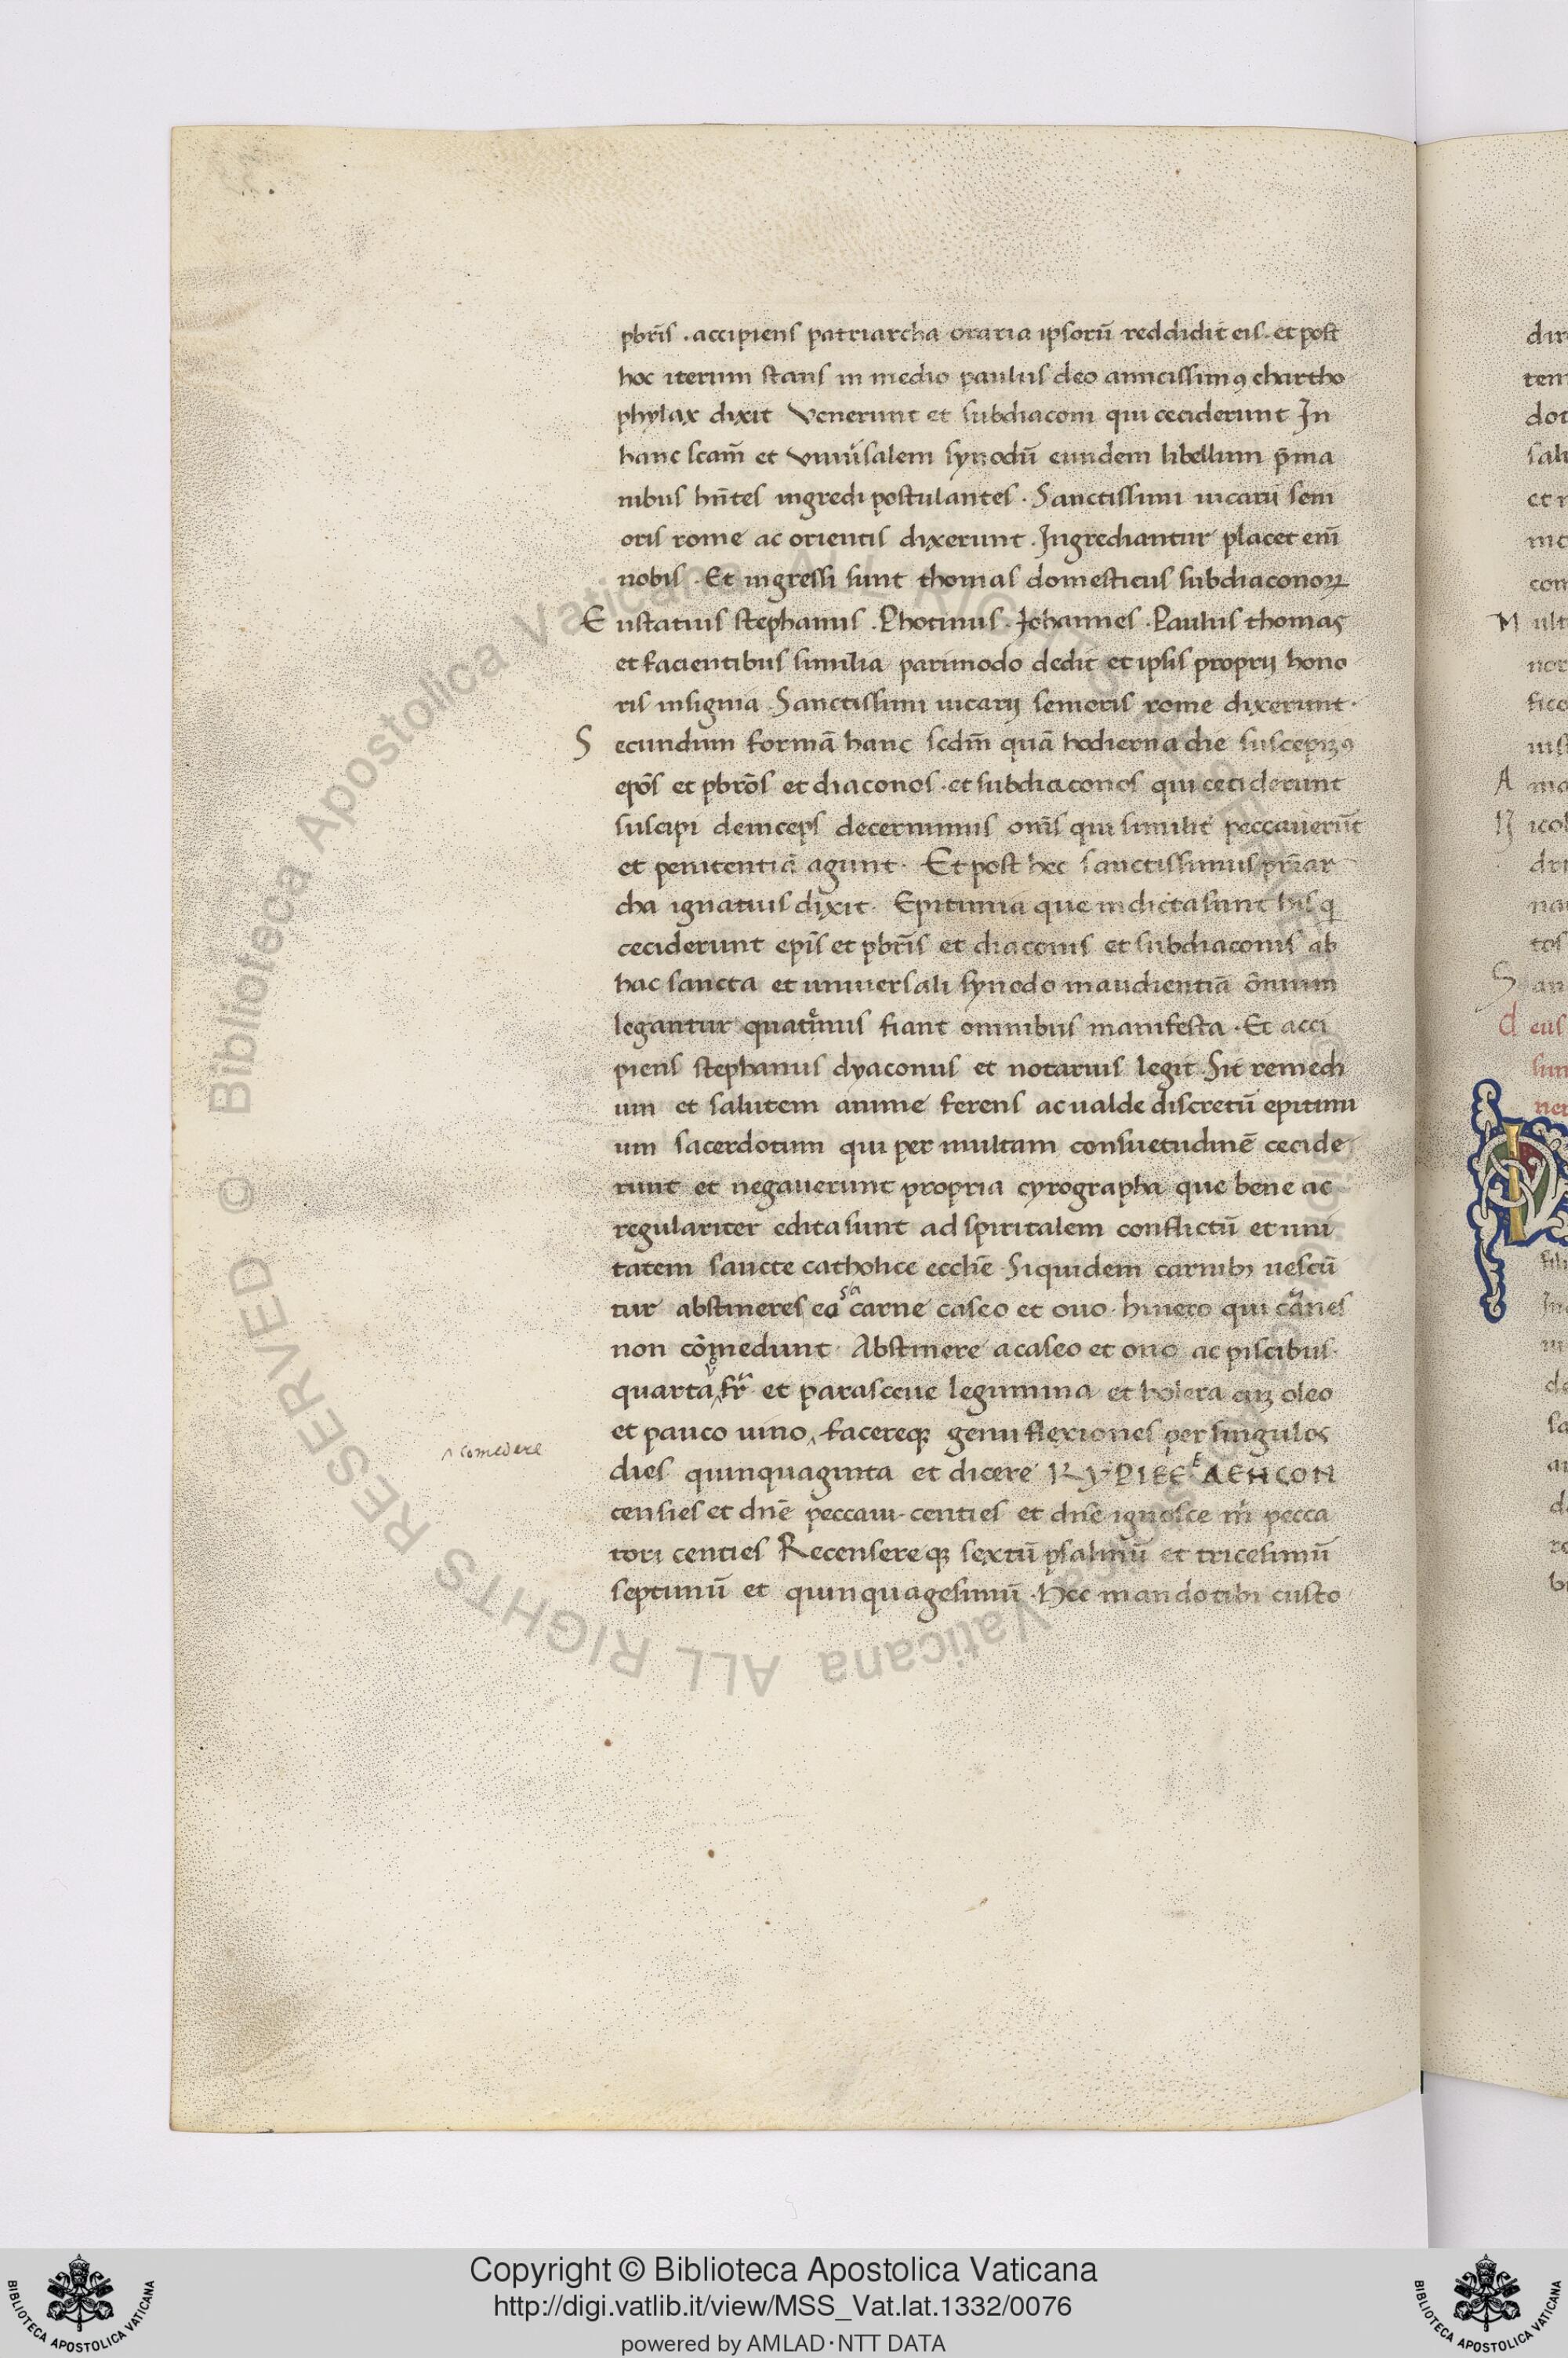 pbr̄is . accipiens patriarcha oraria ipsorū reddidit eis . et post
hoc iterum stans in medio paulus deo amicissimꝰ chartho
phylax dixit Venerunt et subdiaconi qui ceciderunt In
hanc scam̄ et vniūsalem synodū eundem libellum p̄ma
nibus hn̄tes ingredi postulantes . Sanctissimi uicarii seni
oris rome ac orientis dixerunt . Ingrediantur placet eni᷒m̄
nobis . Et ingressi sunt thomas domesticus subdiaconoꝝ
Eustatius stephanus . Photinus . Iohannes . Paulus thomas
et facientibus similia parimodo dedit et ipsis proprij hono
ris insignia . Sanctissimi uicarij senioris rome dixerunt .
Secundum formā hanc scdm̄ quā hodierna die suscepimꝰ
ep̄os et pbrōs et diaconos . et subdiaconos qui ceciderunt
suscipi deinceps decernimus om̄s qui similit̄ peccauerūt
et penitentiā agunt . Et post hec sanctissimus pr̄iar
cha ignatius dixit . Epitimia que indicta sunt his q
ceciderunt ep̄is et pbr̄is et diaconis et subdiaconis ab
hac sancta et uniuersali synodo in audientiā ōnium
legantur quatinus fiant omnibus manifesta . Et acci
piens stephanus dyaconus et notarius legit . Sit remedi
um et salutem anime ferens ac ualde discretū epitimi
um sacerdotum qui per multam consuetudinē cecide
runt et negauerunt propria cyrographa que bene ac
regulariter edita sunt ad spiritalem conflictū et uni
tatem sancte catholice eccl̄ie . Siquidem carnibꝫ uescū
tur abstineres eos a carne caseo et ouo . hi uero qui carnes
non cōmedunt . Abstinere a caseo et ouo ac piscibus .
quarta ꝟo fr̄a et parasceue legumina et holera cuꝫ oleo
et pauco uino ‸ facereqꝫ genu flexiones per singulos
‸ comedere
dies quinquaginta et dicere KYPIEE ΛEHCON
censies et dn̄e peccaui . centies et dn̄e ignosce m̄ pecca
tori centies Recensereqꝫ sextū psalmū et tricesimū
septimū et quinquagesimū . Hec mando tibi custo
Copyright © Biblioteca Apostolica Vaticana
http://digi.vatlib.it/view/MSS_Vat.lat.1332/0076
powered by AMLAD·NTT DATA
BIBLIOTECA APOSTOLICA VATICANA
BIBLIOTECA APOSTOLICA VATICANA
© Biblioteca Apostolica Vaticana ALL RIGHTS RESERVED